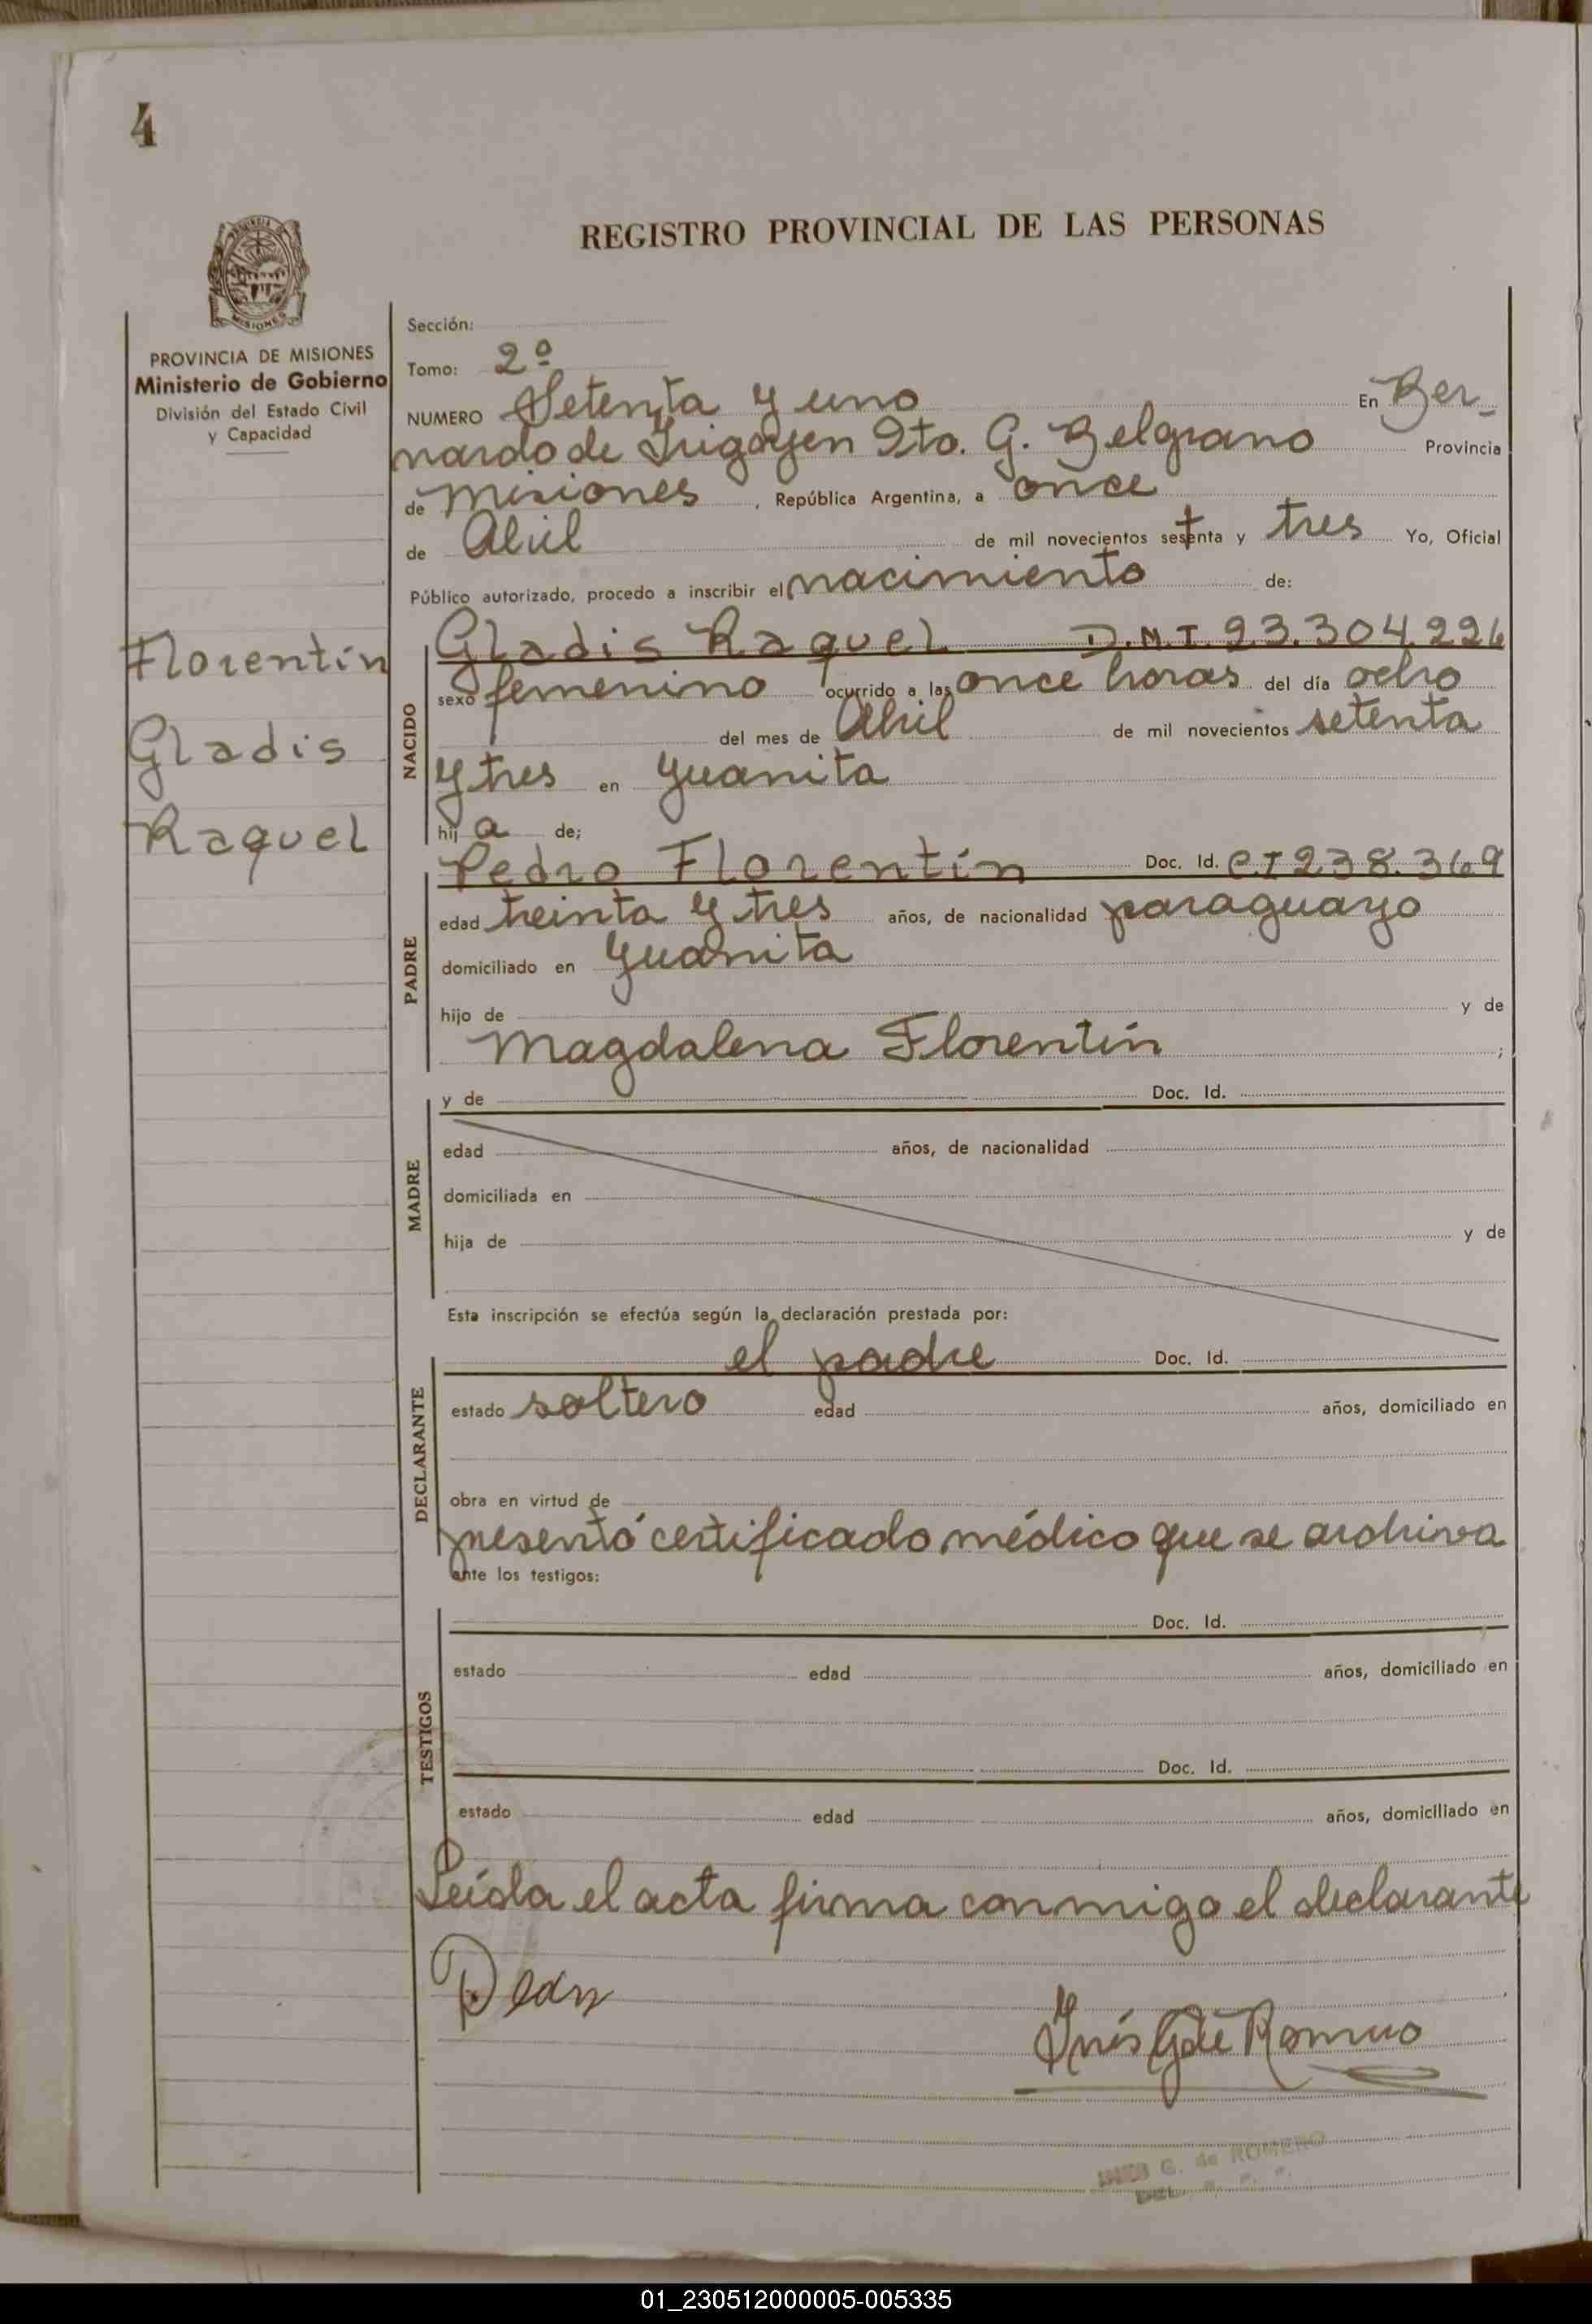 4
REGISTRO PROVINCIAL DE LAS PERSONAS
MISIONES
PROVINCIA DE MISIONES
Ministerio de Gobierno
División del Estado Civil
y Capacidad
Sección:
Tomo: 2º
NUMERO Setenta y uno En Ber-
nardo de Irigoyen Dto. G. Belgrano Provincia
de Misiones, República Argentina, a once
de Abril de mil novecientos setenta y tres Yo, Oficial
Público autorizado, procedo a inscribir el nacimiento de:
Florentín
Gladis
Raquel
NACIDO
Gladis Raquel D.N.I. 23.304.226
sexo femenino ocurrido a las once horas del día ocho
del mes de Abril de mil novecientos setenta
y tres en Juanita
hija de;
PADRE
Pedro Florentín Doc. Id. C.I 238.369
edad treinta y tres años, de nacionalidad paraguayo
domiciliado en Juanita
hijo de y de
Magdalena Florentín ;
MADRE
y de Doc. Id.
edad años, de nacionalidad
domiciliada en
hija de y de
Esta inscripción se efectúa según la declaración prestada por:
DECLARANTE
el padre Doc. Id.
estado soltero edad años, domiciliado en
obra en virtud de
presentó certificado médico que se archiva
ante los testigos:
TESTIGOS
Doc. Id.
estado edad años, domiciliado en
Doc. Id.
estado edad años, domiciliado en
Leída el acta firma conmigo el declarante
Inés G de Romero
INES G. de ROMERO
01_230512000005-005335